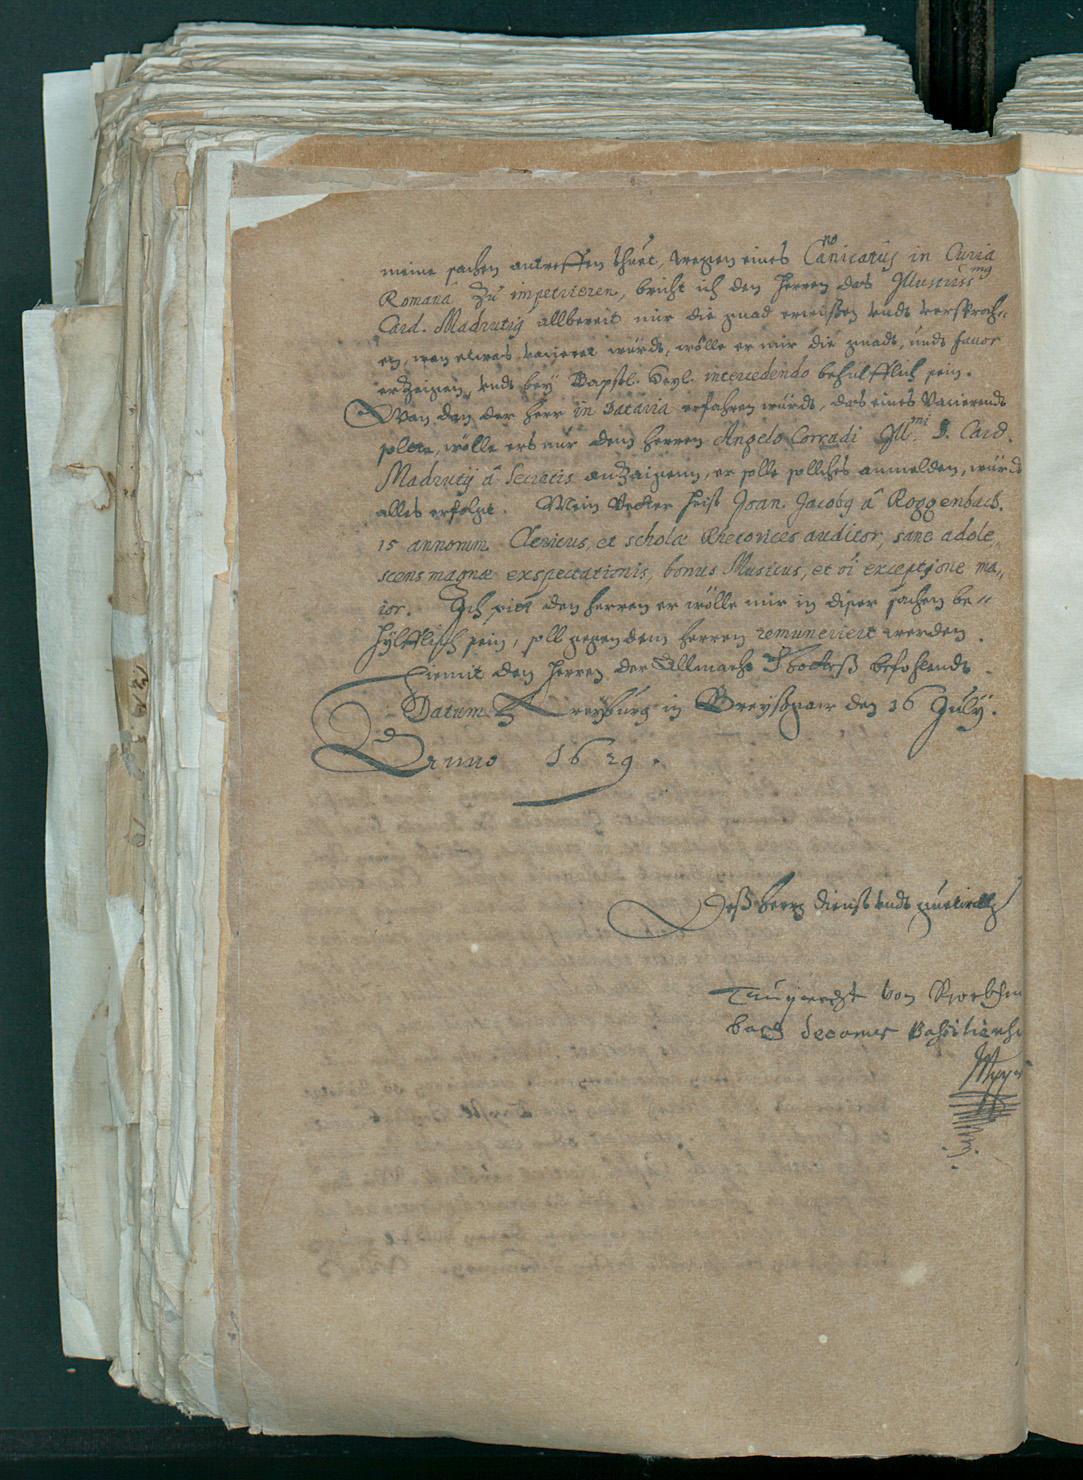 meine sachen antreffen thuet, wegen eines Canicatus in Curia
Romana zu impetrieren, bricht ich den Herren das Illustriss mus
Card. Madrutiy allbereit mir die gnad erwißen unds versproch„
en, wan etwas vacieret würds, wölle er mir die gnads, unds favor
erzeigen, unds bey Bapstl. Heyl. intercedendo behülfflich sein.
Wan dan der Herr in Dataria erfahren würds, das eines Vacierends
solte, wölle ers nur dem Herren Angelo Corradi Ill.mi D. Card.
Madrutij â Secretis anzaigenn, er solle solliches anmelden, würds
alles erfolget. Mein Vetter heist Joan. Jacobq â Roggenbach.
15 annorum Clericus, et scholæ Rhetorices auditor, sane adole„
scens magnæ exspectationis, bonus Musicus, et oi exceptione ma„
ior. Ich pitt den herren er wölle mir in diser sachen be„
hylfflich sein, soll gegen dem herren remuneriert werden.
Hiemit den Herren der Allmacht Gottes befohlends.
Datum Freyburg in Breyßgaw den 16 July.
Anno 1629.
Deß herrn dienst unds guetwillig
von
bach Decanus